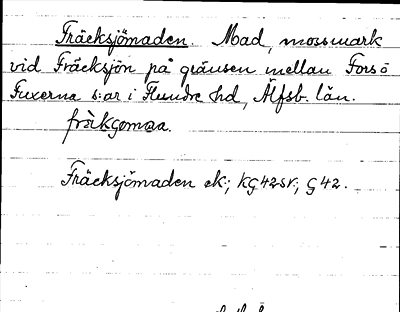 Fräcksjömaden. Mad, mossmark
vid Fräcksjön på gränsen mellan Forsö
Fuxerna s:ar i Flundre hd, Älfsb. län.
fràkgomaa.
Fräcksjömaden ek.; KG42SV.; G42.